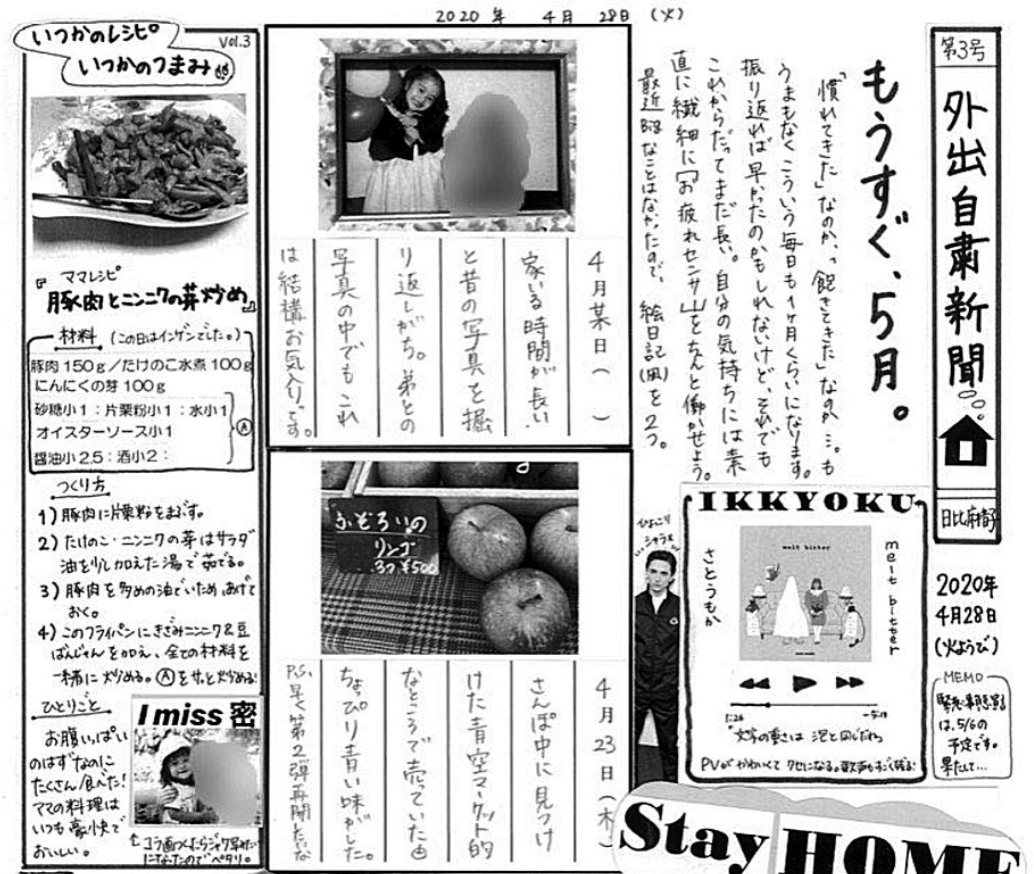 2020年 4月 28日 (火)
第3号
外出自粛新聞
日比麻
2020年
4月28日
(火ようび)
MEMO
緊急事態宣言
は、5/6の
予定です。
果たして…
もうすぐ、5月。
「慣れてきた」なのか、「飽きてきた」なのか…。も
うまもなくこういう毎日も1ヶ月くらいになります。
振り返れば早かったのかもしれないけど、それでも
これからだってまだ長い。自分の気持ちには素
直に繊細に「お疲れセンサー」をちゃんと働かせよう。
最近Bigなことはなかったので、絵日記(風)を2つ。
4月某日( )
家いる時間が長い
と昔の写真を掘
り返しがち。弟との
写真の中でもこれ
は結構お気入りです。
ふぞろいの
リンゴ
3つ¥500
4月23日(木)
さんぽ中に見つけ
けた青空マーケット的
なところで売っていた
ちょっぴり青い味がした。
P.S. 早く第2弾再開したいな
いつかのレシピ
いつかのつまみ
Vol.3
ママレシピ
『豚肉とニンニクの芽炒め』
材料 (この日はインゲンでした。)
豚肉150g/たけのこ水煮100g
にんにくの芽100g
砂糖小1:片栗粉小1:水小1
オイスターソース小1
醤油小2.5:酒小2:
Ⓐ
つくり方
1)豚肉に片栗粉をまぶす。
2)たけのこ・ニンニクの芽はサラダ
油を少し加えた湯で茹でる。
3)豚肉を多めの油でいため、あげて
おく。
4)このフライパンにきざみニンニク&豆
ばんじゃんを加え、全ての材料を
一緒に炒める。Ⓐをサッと炒める!
ひとりごと
お腹いっぱい
のはずなのに
たくさん食べた!
ママの料理は
いつも豪快で
おいしい。
I miss 密
になったのでペタリ。
IKKYOKU
さとうもか
melt bitter
melt bitter
1:26
文字の重さは 泥と同じだから
PVがかわいくてクセになる。歌声もすごく残る!
ひょっこり
Stay HOME